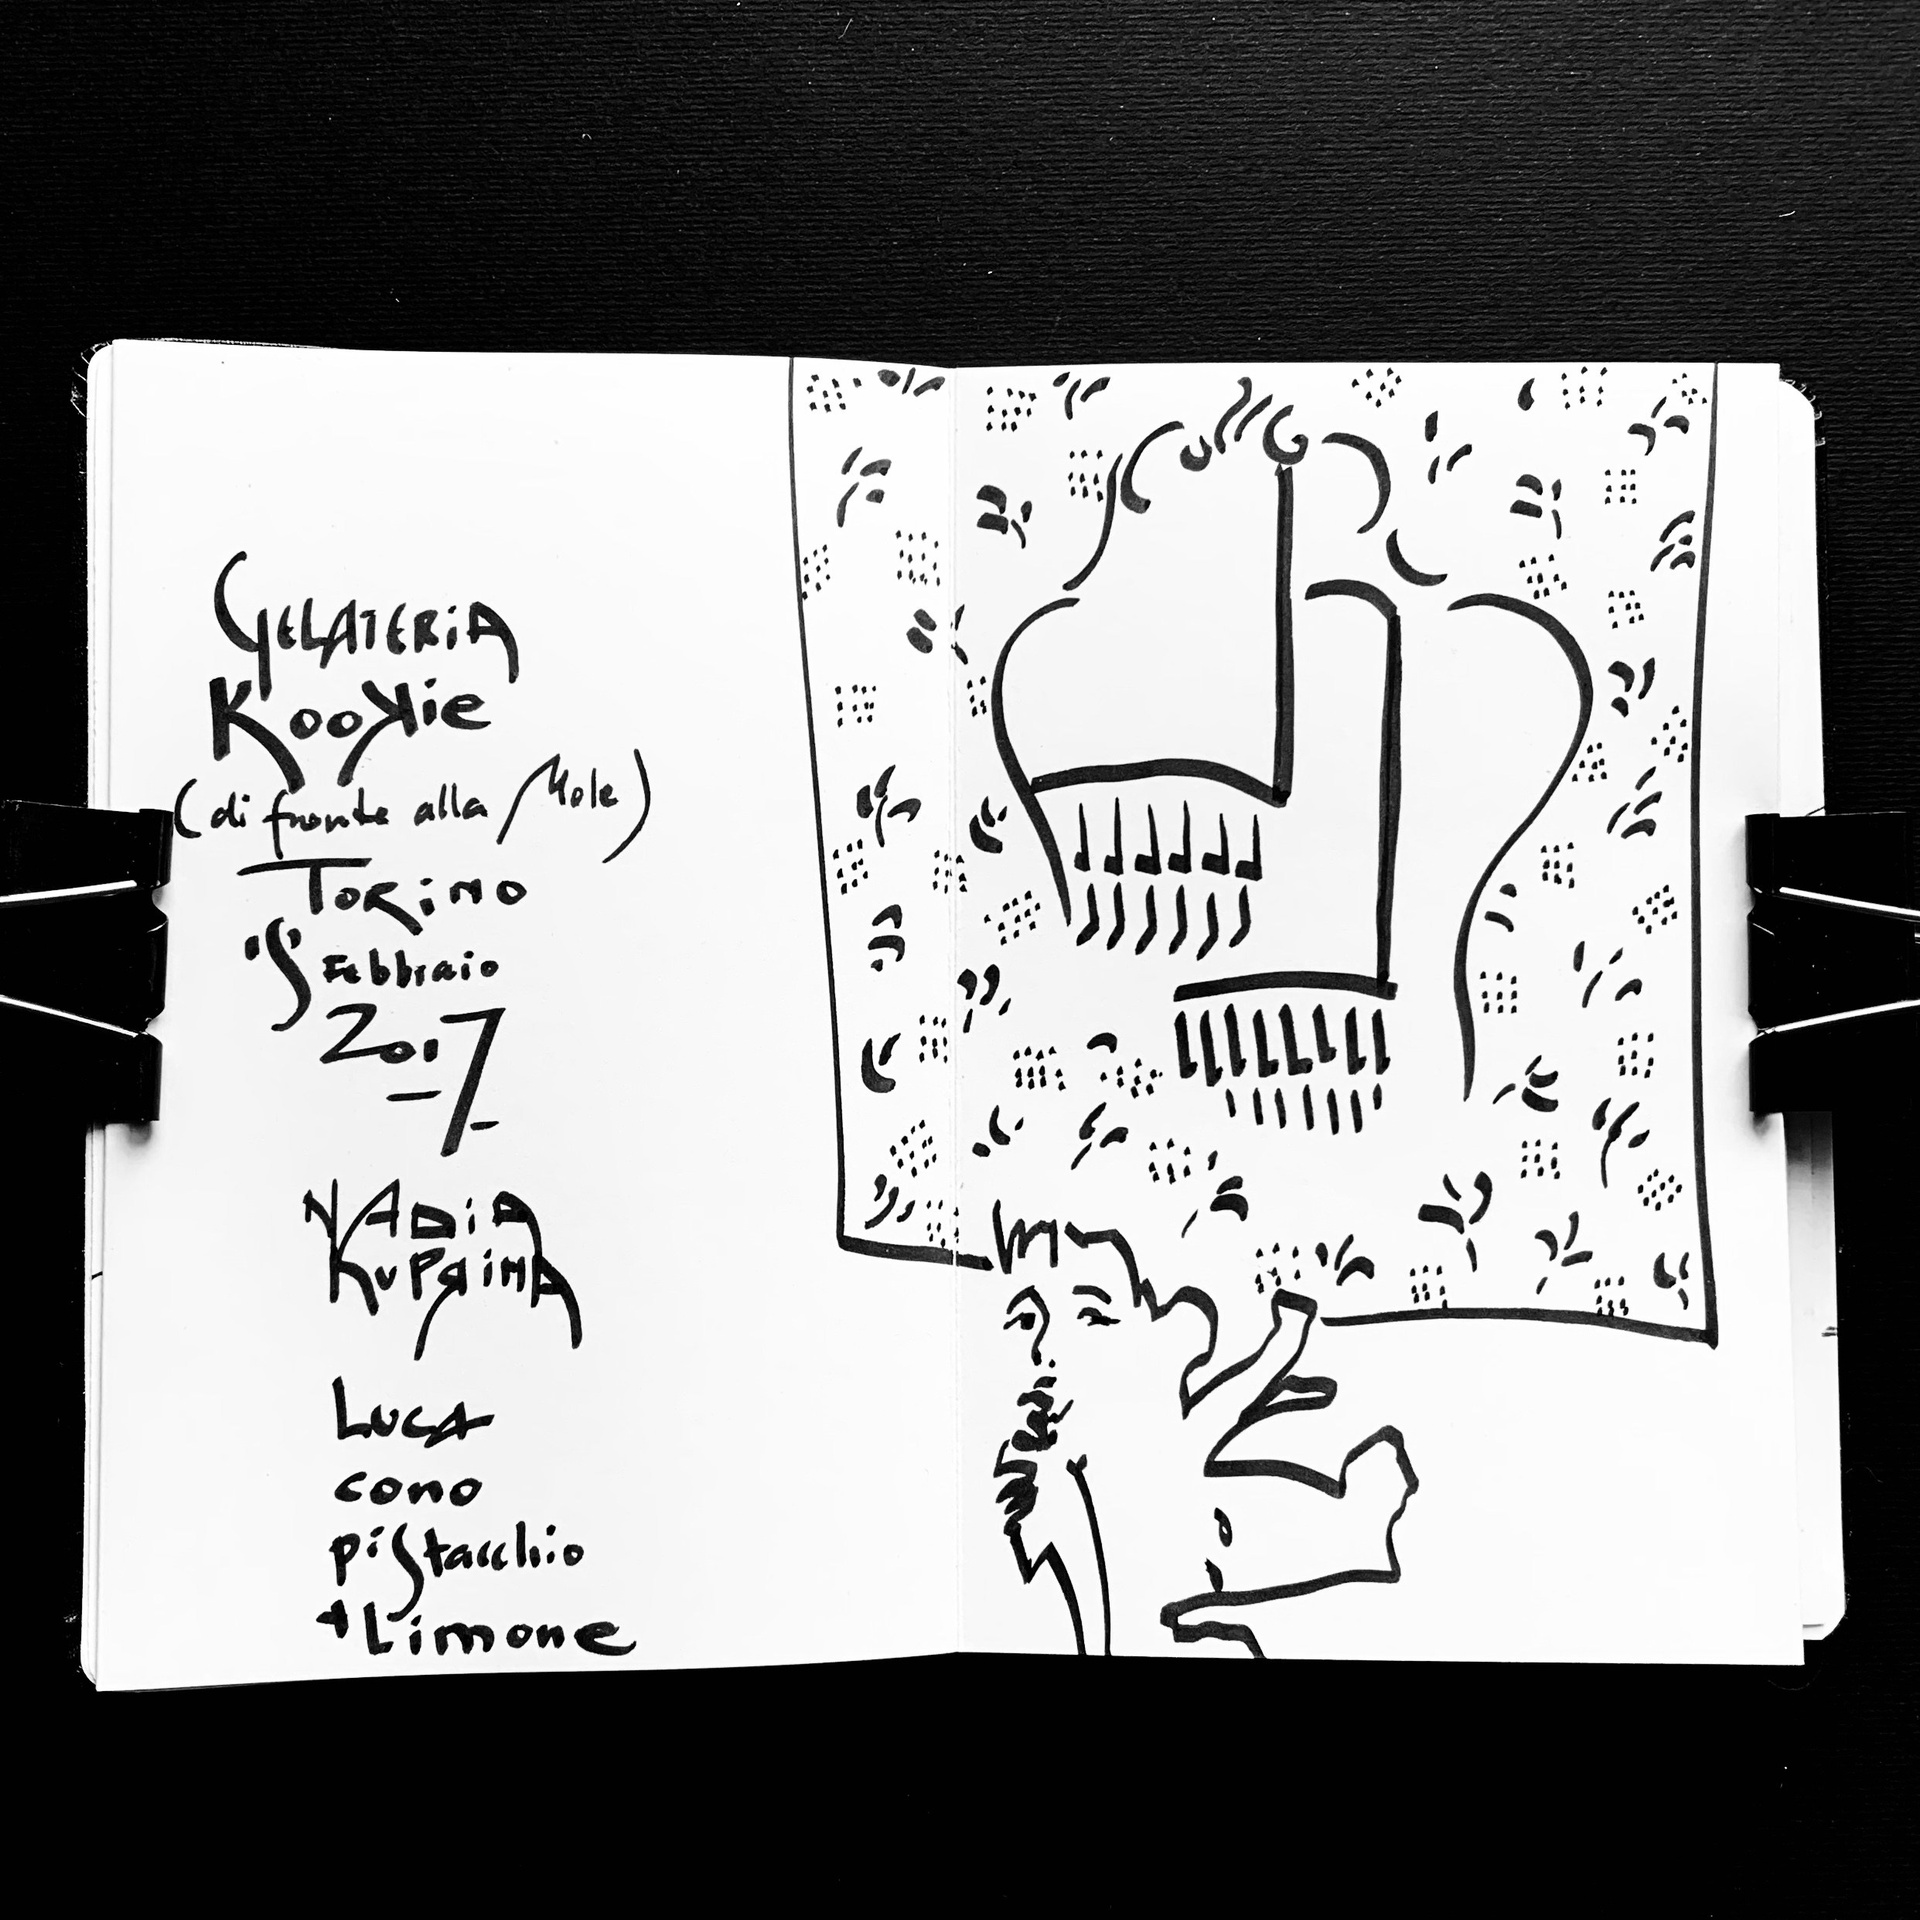 GELATERiA
Kookie
(di fronte alla Mole)
TORiNO
Febbraio
2017
NADiA
KUPRiNA
LUCA
cono
piStacchio
+Limone